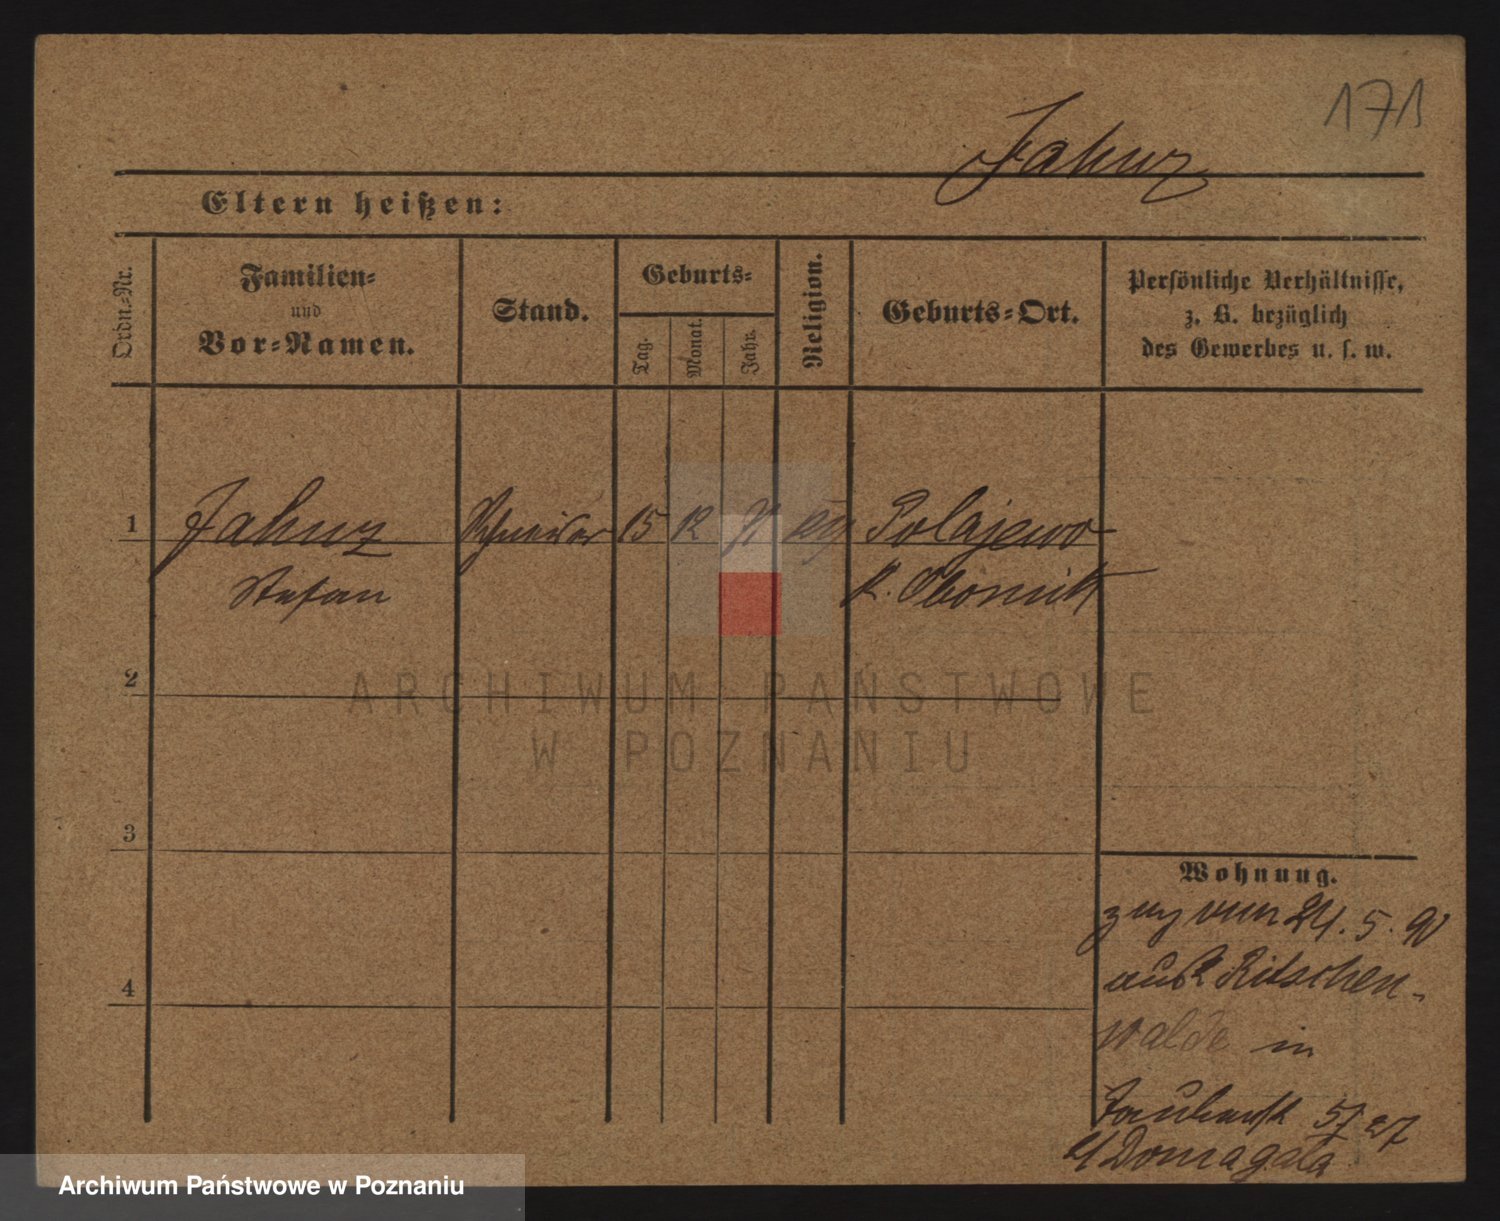 171
Jahnz
Eltern heißen:
Ordn.-Nr.
Familien-
und
Vor-Namen.
Stand.
Geburts-
Tag.
Monat.
Jahr.
Religion.
Geburts-Ort.
Persönliche Verhältnisse,
z. B. bezüglich
des Gewerbes u. s. w.
1 Jahnz Schneider 15 12 71 Polajewo
Stefan K. Obornik
2
ARCHIWUM PAŃSTWOWE
W POZNANIU
3
Wohnung.
zug vom 24. 5. 90
aus Ritschen-
4
walde in
57 27
b/ Domagala
Archiwum Państwowe w Poznaniu